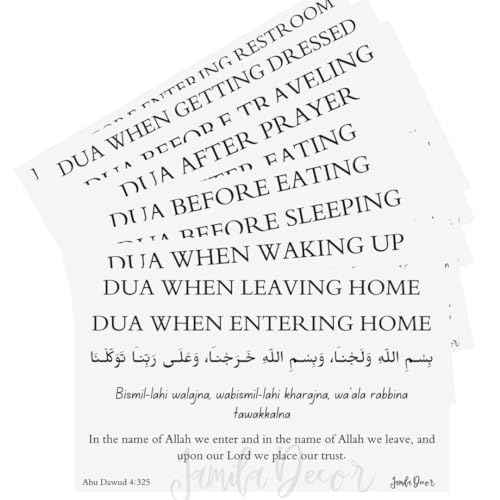 ENTERING RESTROOM
DUA WHEN GETTING DRESSED
DUA BEFORE TRAVELING
DUA AFTER PRAYER
EATING
DUA BEFORE EATING
DUA BEFORE SLEEPING
DUA WHEN WAKING UP
DUA WHEN LEAVING HOME
DUA WHEN ENTERING HOME
بِسْمِ اللَّهِ وَلَجْنَا، وَبِسْمِ اللَّهِ خَرَجْنَا، وَعَلَى رَبِّنَا تَوَكَّلْنَا
Bismil-lahi walajna, wabismil-lahi kharajna, wa'ala rabbina
tawakkalna
In the name of Allah we enter and in the name of Allah we leave, and
upon our Lord we place our trust.
Abu Dawud 4:325
Jamila Decor
Jamila Decor